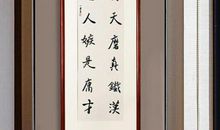 天磨真鐵漢
人嫉是庸才